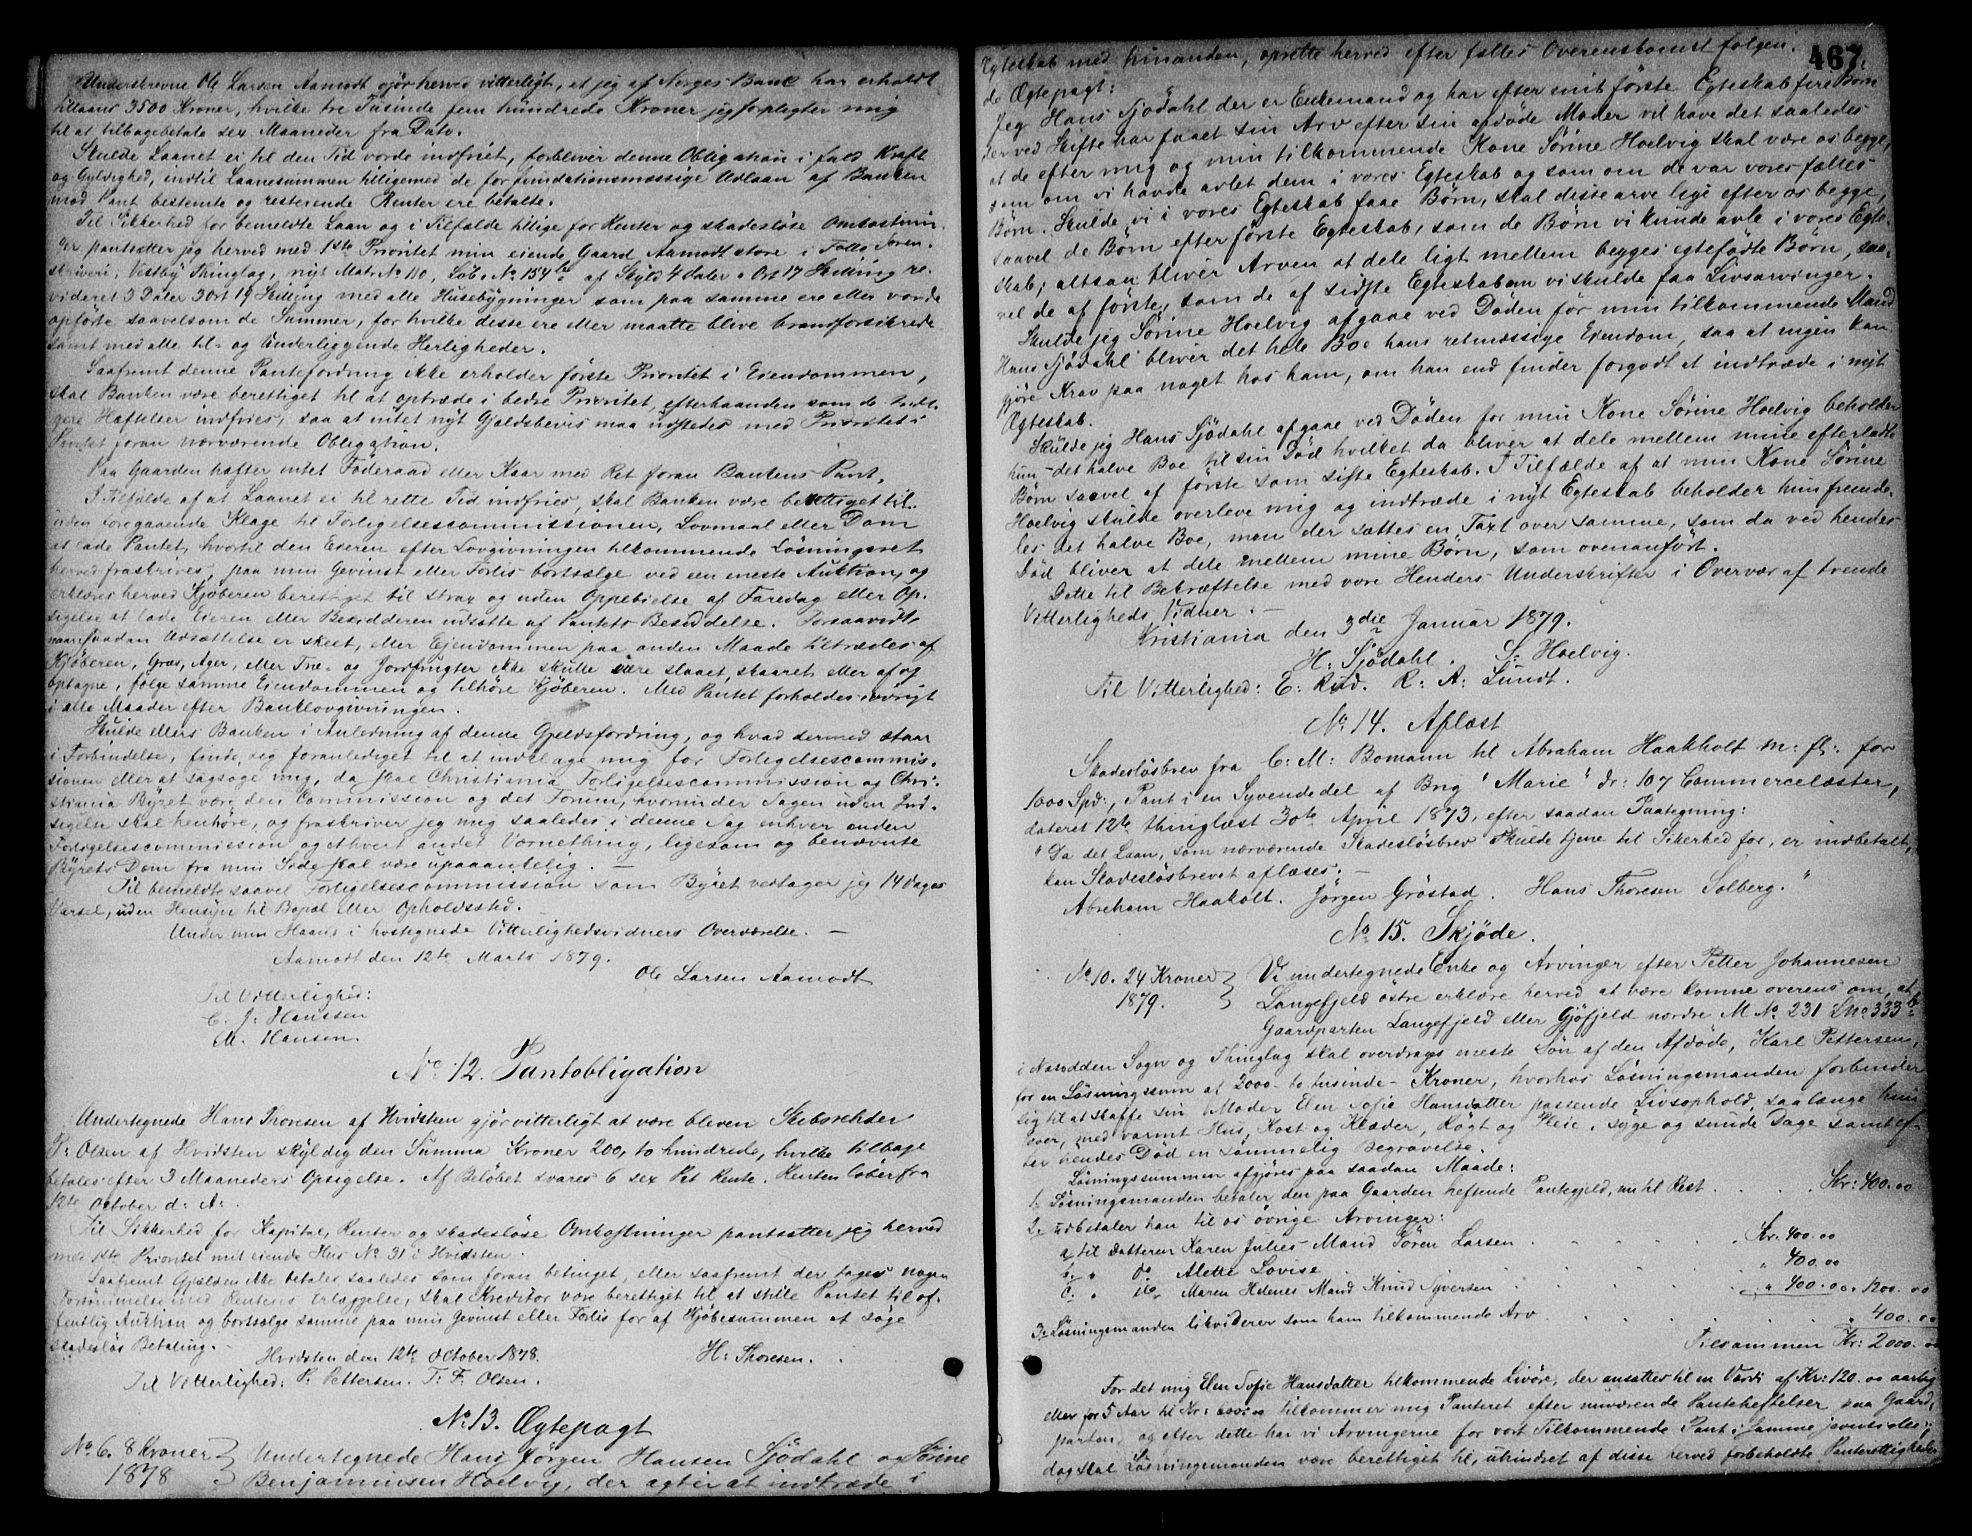 Underskrevne Ole Larsen Aamodt gjør herved vitterligt, at jeg af Norges Bank har erholdt
tillaans 3500 Kroner, hvilke tre Tusinde fem hundrede Kroner jeg forpligter mig
til at tilbagebetale sex Maaneder fra Dato.
Skulde Laanet ei til den Tid vorde indfriet, forbliver denne Obligation i fuld Kraft
og Gyldighed, indtil Laanesummen tilligemed de for fundationsmæssige Udlaan af Banken
mod Pant bestemte og resterende Renter ere betalte.
Til Sikkerhed for bemeldte Laan og i Tilfælde tillige for Renter og skadesløse Omkostnin-
ger pantsætter jeg herved med 1ste Prioritet min eiende Gaard Aamodt store i Follo Soren-
skriveri, Vestby Thinglag, nyt Matr. No 110, Løb. No 154 af Skyld 4 daler 2 Ort 17 Skilling re-
videret 3 Daler 3 Ort 19 Skilling med alle Husebygninger som paa samme ere eller vorde
opførte saavelsom de Summer, for hvilke disse ere eller maatte blive brandforsikrede
samt med alle til- og underliggende Herligheder.
Saafremt denne Pantefordring ikke erholder første Prioritet i Eiendommen,
skal Banken være berettiget til at optræde i bedre Prioritet, efterhaanden som de tidli-
gere Hæftelser indfries, saa at intet nyt Gjældsbevis maa udstedes med Prioritet i
Pantet foran nærværende Obligation.
Paa Gaarden hæfter intet Føderaad eller Kaar med Ret foran Bankens Pant.
I Tilfælde af at Laanet ei til rette Tid indfries, skal Banken være berettiget til
uden foregaaende Klage til Forligelsescommissionen, Lovmaal eller Dom
at lade Pantet, hvortil den Eieren efter Lovgivningen tilkommende Løsningsret
herved fraskrives, paa min Gevinst eller Forlis bortsælge ved een eneste Auktion, og
erklæres herved Kjøberen berettiget til strax og uden Oppebielse af Faredag eller Op-
sigelse at lade Eieren eller Besidderen udsætte af Pantets Besiddelse. Forsaavidt,
naar saadan Udsættelse er skeet, eller Ejendommen paa anden Maade tiltrædes af
Kjøberen, Græs, Ager, eller Træ- og Jordfrugter ikke skulle være slaaet, skaaret eller af og
optagne, følge samme Eiendommen og tilhøre Kjøberen. Med Pantet forholdes iøvrigt
i alle Maader efter Banklovgivningen.
Skulde ellers Banken i Anledning af denne Gjeldsfordring, og hvad dermed staar
i Forbindelse, finde sig foranlediget til at indklage mig for Forligelsescommis-
sionen eller at sagsøge mig, da skal Christiania Forligelsescommission og Chri-
stiania Byret være den Commission og det Forum, hvorunder Sagen uden Ind-
sigelse skal henhøre, og fraskriver jeg mig saaledes i denne Sag enhver anden
Forligelsescommission og ethvert andet Værnething, ligesom og benævnte
Byrets Dom fra min Side skal være upaaankelig. —
Til bemeldte saavel Forligelsescommission som Byret vedtager jeg 14 Dages
Varsel, uden Hensyn til Bopæl eller Opholdssted.
Under min Haand i hostegnede Vitterlighedsvidners Overværelse. —
Aamodt den 12te Marts 1879.
Ole Larsen Aamodt
Til Vitterlighed:
C. J. Hanssen
M. Hansen.
No 12. Pantobligation
Undertegnede Hans Thoresen af Hvidsten gjør vitterligt at være bleven Skibsrehder
P. Olsen af Hvidsten skyldig den Summa Kroner 200, to hundrede, hvilke tilbage
betales efter 3 Maaneders Opsigelse. Af Beløbet svares 6 sex Pct Rente. Renten løber fra
12te October d: A: .
Til Sikkerhed for Kapital, Renter og skadesløse Omkostninger pantsætter jeg herved
med 1ste Prioritet mit eiende Hus No 31 i Hvidsten.
Saafremt Gjælden ikke betales saaledes som foran betinget, eller saafremt der tages nogen
Forsømmelse med Rentens Erlæggelse, skal Kreditor være berettiget til at stille Pantet til of-
fentlig Auktion og bortsælge samme paa min Gevinst eller Forlis for af Kjøbesummen at søge
skadesløs Betaling. -
Hvidsten den 12te October 1878. H: Thoresen.
Til Vitterlighed: P. Pettersen. T: F: Olsen.
No 13. Ægtepagt
No 6. 8 Kroner
1878
Undertegnede Hans Jørgen Hansen Sjödahl og Sørine
Benjaminsen Hoelvig, der agter at indtræde i
467.
Ægteskab med hinanden, oprette herved efter fælles Overenskomst følgen-
de Ægtepagt:
Jeg Hans Sjödahl der er Enkemand og har efter mit første Egteskab fire Børn
der ved Skifte har faaet sin Arv efter sin afdøde Moder vil have det saaledes
at de efter mig og min tilkommende Kone Sørine Hoelvig skal være os begge,
som om vi havde avlet dem i vores Egteskab og som om de var vores fælles
Børn. Skulde vi i vores Egteskab faae Børn, skal disse arve lige efter os begge,
saavel de Børn efter første Egteskab, som de Børn vi kunde avle i vores Egte-
skab; altsaa bliver Arven at dele ligt mellem begges egtefødte Børn, saa-
vel de af første, som de af sidste Egteskab om vi skulde faa Livsarvinger.
Skulde jeg Sørine Hoelvig afgaae ved Døden før min tilkommende Mand
Hans Sjödahl bliver det hele Boe hans retmæssige Eiendom, saa at ingen kan
gjøre Krav paa noget hos ham, om han end finder forgodt at indtræde i nyt
Ægteskab.
Skulde jeg Hans Sjödahl afgaae ved Døden før min Kone Sørine Hoelvig beholder
hun det halve Boe til sin Død hvilket da bliver at dele mellem mine efterladte
Børn saavel af første som sidste Egteskab. I Tilfælde af at min Kone Sørine
Hoelvig skulde overleve mig og indtræde i nyt Egteskab beholder hun fremde-
les det halve Boe, men der sættes en Taxt over samme, som da ved hendes
Død bliver at dele mellem mine Børn, som ovenanført.
Dette til Bekræftelse med vore Henders Underskrifter i Overvær af tvende
Vitterligheds Vidner. —
Kristiania den 3die Januar 1879.
H: Sjödahl. S: Hoelvig.
Til Vitterlighed: E: Rud. R: A: Lundt.
No 14. Aflæst
Skadesløsbrev fra C: M: Bomann til Abraham Haakholt m: fl: for
1000 Spd:, Pant i en Syvendedel af Brig "Marie" dr: 107 Commercelæster,
dateret 12te thinglæst 30te April 1873, efter saadan Paategning:
"Da det Laan, som nærværende Skadesløsbrev skulde tjene til Sikerhed for, er indbetalt,
kan Skadesløsbrevet aflæses. —
Abraham Haakolt. Jørgen Grøstad. Hans Thoresen Solberg."
No 15. Skjøde.
No 10. 24 Kroner
1879.
Vi undertegnede Enke og Arvinger efter Petter Johannesen
Langefjeld østre erklære herved at være komne overens om, at
Gaardparten Langefjeld eller Gjøfjeld nordre M No 231 L No 333
i Nesodden Sogn og Thinglag skal overdrages eneste Søn af den Afdøde, Karl Pettersen,
for en Løsningssum af 2000 - to tusinde - Kroner, hvorhos Løsningsmanden forbinder
sig til at skaffe sin Moder Elen Sofie Hansdatter passende Livsophold, saalænge hun
lever, med varmt Hus, Kost og Klæder, Røgt og Pleie, syge og sunde Dage samt ef-
ter hendes Død en sømmelig Begravelse.
Løsningssummen afgjøres paa saadan Maade:
1. Løsningsmanden betaler den paa Gaarden heftende Pantegjeld, nu til Rest . . . Kr: 400.00
2. udbetaler han til os øvrige Arvinger:
a, til Datteren Karen Julies Mand Søren Larsen . . . Kr. 400.00
b. " do Alette Lovise . . . " 400.00
c. " do Maren Helenes Mand Knud Syversen . . . " 400.00 " 1200.00
3. Løsningsmanden likviderer som ham tilkommende Arv . . . " 400.00
Tilsammen Kr: 2000.00
For det mig Elen Sofie Hansdatter tilkommende Livøre, der ansættes til en Værdi af Kr: 120.00 aarlig
eller for 5 Aar til Kr: 600.00 tilkommer mig Panteret efter nuværende Panteheftelser paa Gaard-
parten, og efter dette har vi Arvingerne for vort Tilkommende Pant i Samme jevnsides;
dog skal Løsningsmanden være berettiget til, uhindret af disse herved forbeholdte Panterettigheder